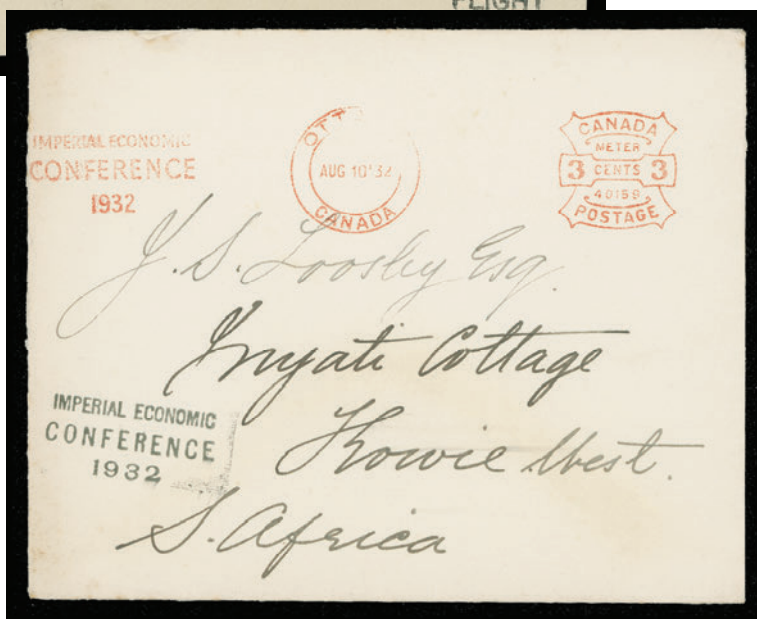 FLIGHT
IMPERIAL ECONOMIC
CONFERENCE
1932
OTT
AUG 10 '32
CANADA
CANADA
METER
3 CENTS 3
40159
POSTAGE
J. S. Loosley Esq.
Inyati Cottage
Kowie West.
S. Africa
IMPERIAL ECONOMIC
CONFERENCE
1932